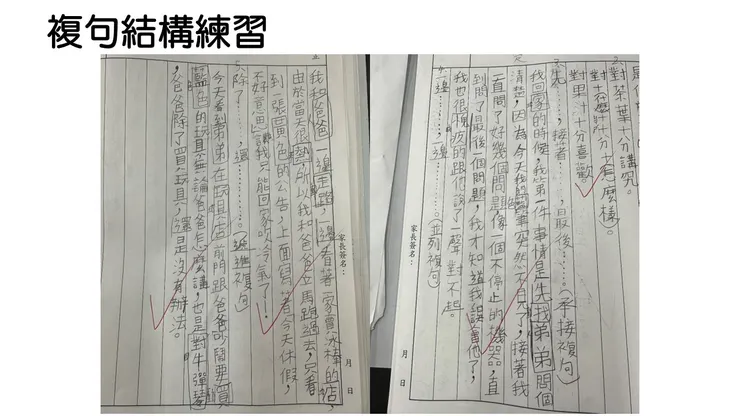 複句結構練習
對茶葉十分講究。
對什麼十分怎麼樣。
對果汁十分喜歡。
3.先……,接著……,最後……。(承接複句)
我回家的時候,我第一件事情是先找弟弟問個
清楚,因為今天我的
突然不見了,接著我
一直問了好幾個問題,像一個不停止的機器,直
到問了最後一個問題,我才知道我誤會他了,
我也很
的跟他說了一聲對不起。
4.一邊……,一邊……。(並列複句)
家長簽名:
月 日
我和爸爸一邊走路,一邊看著一家賣冰棒的店,
由於當天很熱,所以我和爸爸立馬跑過去,只看
到一張黃色的公告,上面寫著今天休假,
不好意思,我只能回家吹冷氣了。
5.除了……,還……。(遞進複句)
今天看到弟弟在玩具店前門跟爸爸吵鬧要買
藍色的玩具,無論爸爸怎麼講,也是對牛彈琴
,爸爸除了買玩具,還是沒有辦法。
家長簽名:
月 日